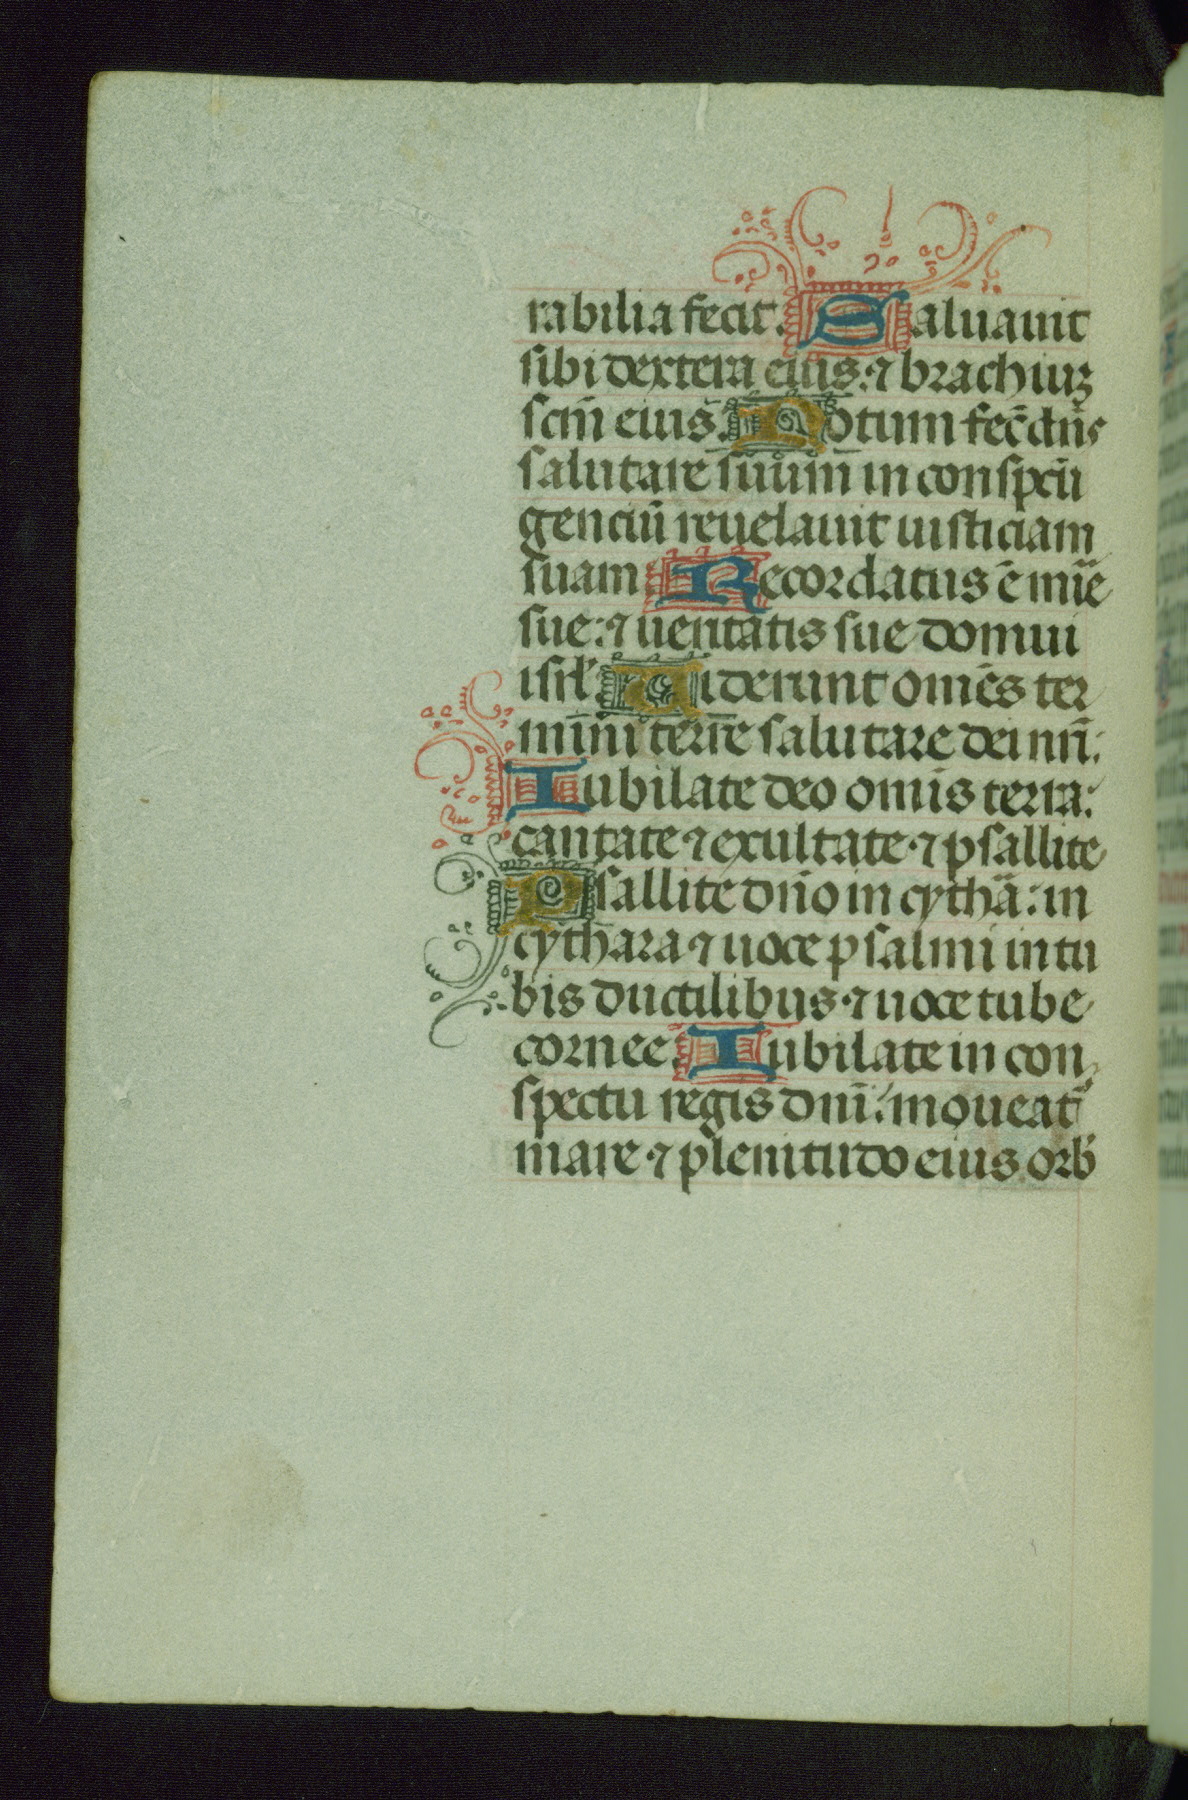 rabilia fecit. Saluauit
sibi dextera eius: ⁊ brachiuꝫ
scm̄ eius. Notum fec̄ dn̄s
salutare suum in conspcū
genciū reuelauit iusticiam
suam. Recordatus ē mīe
sue: ⁊ ueritatis sue domui
isrl̄. Uiderunt omēs ter
mini terre salutare dei nr̄i:
Iubilate deo omīs terra:
cantate ⁊ exultate ⁊ psallite
Psallite dn̄o in cythā: in
cythara ⁊ uoce psalmi in tu
bis ductilibus ⁊ uoce tube
cornee. Iubilate in con
spectu regis dn̄i: moueat᷑
mare ⁊ plenitudo eius orb̄